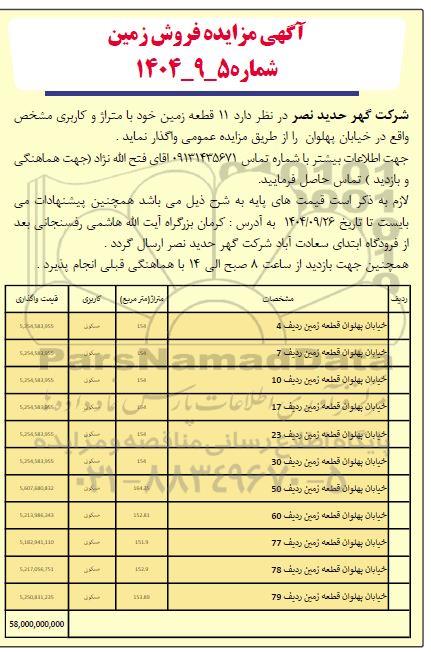 آگهی مزایده فروش زمین
شماره۵_۹_۱۴۰۴
شرکت گهر حدید نصر در نظر دارد ۱۱ قطعه زمین خود با متراژ و کاربری مشخص
واقع در خیابان پهلوان را از طریق مزایده عمومی واگذار نماید .
جهت اطلاعات بیشتر با شماره تماس ۰۹۱۳۱۴۳۵۶۷۱ اقای فتح الله نژاد (جهت هماهنگی
و بازدید ) تماس حاصل فرمایید.
لازم به ذکر است قیمت های پایه به شرح ذیل می باشد همچنین پیشنهادات می
بایست تا تاریخ ۱۴۰۴/۰۹/۲۶ به آدرس : کرمان بزرگراه آیت الله هاشمی رفسنجانی بعد
از فرودگاه ابتدای سعادت آباد شرکت گهر حدید نصر ارسال گردد .
همچنین جهت بازدید از ساعت ۸ صبح الی ۱۴ با هماهنگی قبلی انجام پذیرد .
ردیف مشخصات متراژ(متر مربع) کاربری قیمت واگذاری
خیابان پهلوان قطعه زمین ردیف 4 154 مسکونی 5,254,583,955
خیابان پهلوان قطعه زمین ردیف 7 154 مسکونی 5,254,583,955
خیابان پهلوان قطعه زمین ردیف 10 154 مسکونی 5,254,583,955
خیابان پهلوان قطعه زمین ردیف 17 154 مسکونی 5,254,583,955
خیابان پهلوان قطعه زمین ردیف 23 154 مسکونی 5,254,583,955
خیابان پهلوان قطعه زمین ردیف 30 154 مسکونی 5,254,583,955
خیابان پهلوان قطعه زمین ردیف 50 164.35 مسکونی 5,607,680,832
خیابان پهلوان قطعه زمین ردیف 60 152.81 مسکونی 5,213,986,343
خیابان پهلوان قطعه زمین ردیف 77 151.9 مسکونی 5,182,941,110
خیابان پهلوان قطعه زمین ردیف 78 152.9 مسکونی 5,217,056,751
خیابان پهلوان قطعه زمین ردیف 79 153.89 مسکونی 5,250,831,235
58,000,000,000
ParsNamadData
پایگاه اطلاع رسانی مناقصه و مزایده
۰۲۱-۸۸۳۴۹۶۷۰-۵